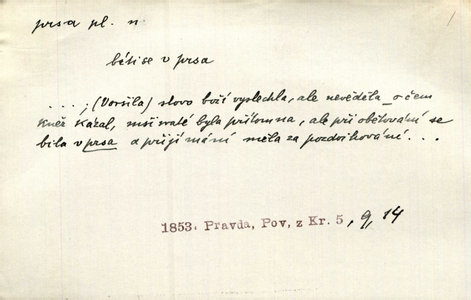 prsa pl. n
bíti se v prsa
. . . . ; (Voršila) slovo boží vyslechla, ale nevěděla o čem
kněz kázal, mši svaté byla přítomna, ale při obětování se
bila v prsa a přijímání měla za pozdvihování . . .
1853: Pravda, Pov, z Kr. 5, 9, 14